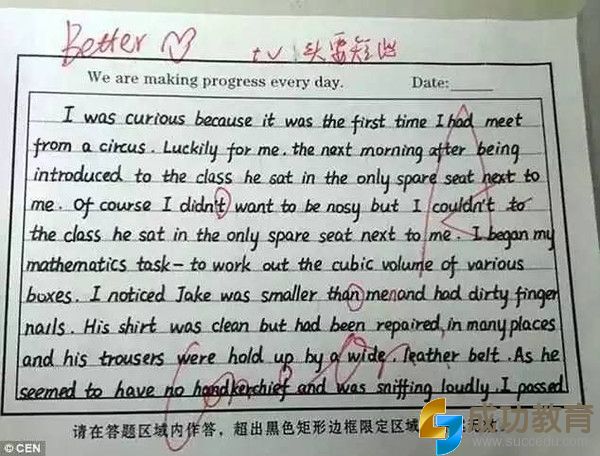 Better
t v 头要短些
We are making progress every day. Date:
I was curious because it was the first time I had meet
from a circus. Luckily for me. the next morning after being
introduced to the class he sat in the only spare seat next to
me. Of course I didn't want to be nosy but I couldn't to
the class he sat in the only spare seat next to me. I began my
mathematics task- to work out the cubic volume of various
boxes. I noticed Jake was smaller than menand had dirty finger
nails. His shirt was clean but had been repaired, in many places
and his trousers were hold up by a wide. leather belt. As he
seemed to have no handkerchief and was sniffing loudly. I passed
请在答题区域内作答，超出黑色矩形边框限定区域
成功教育
www.succedu.com
© CEN